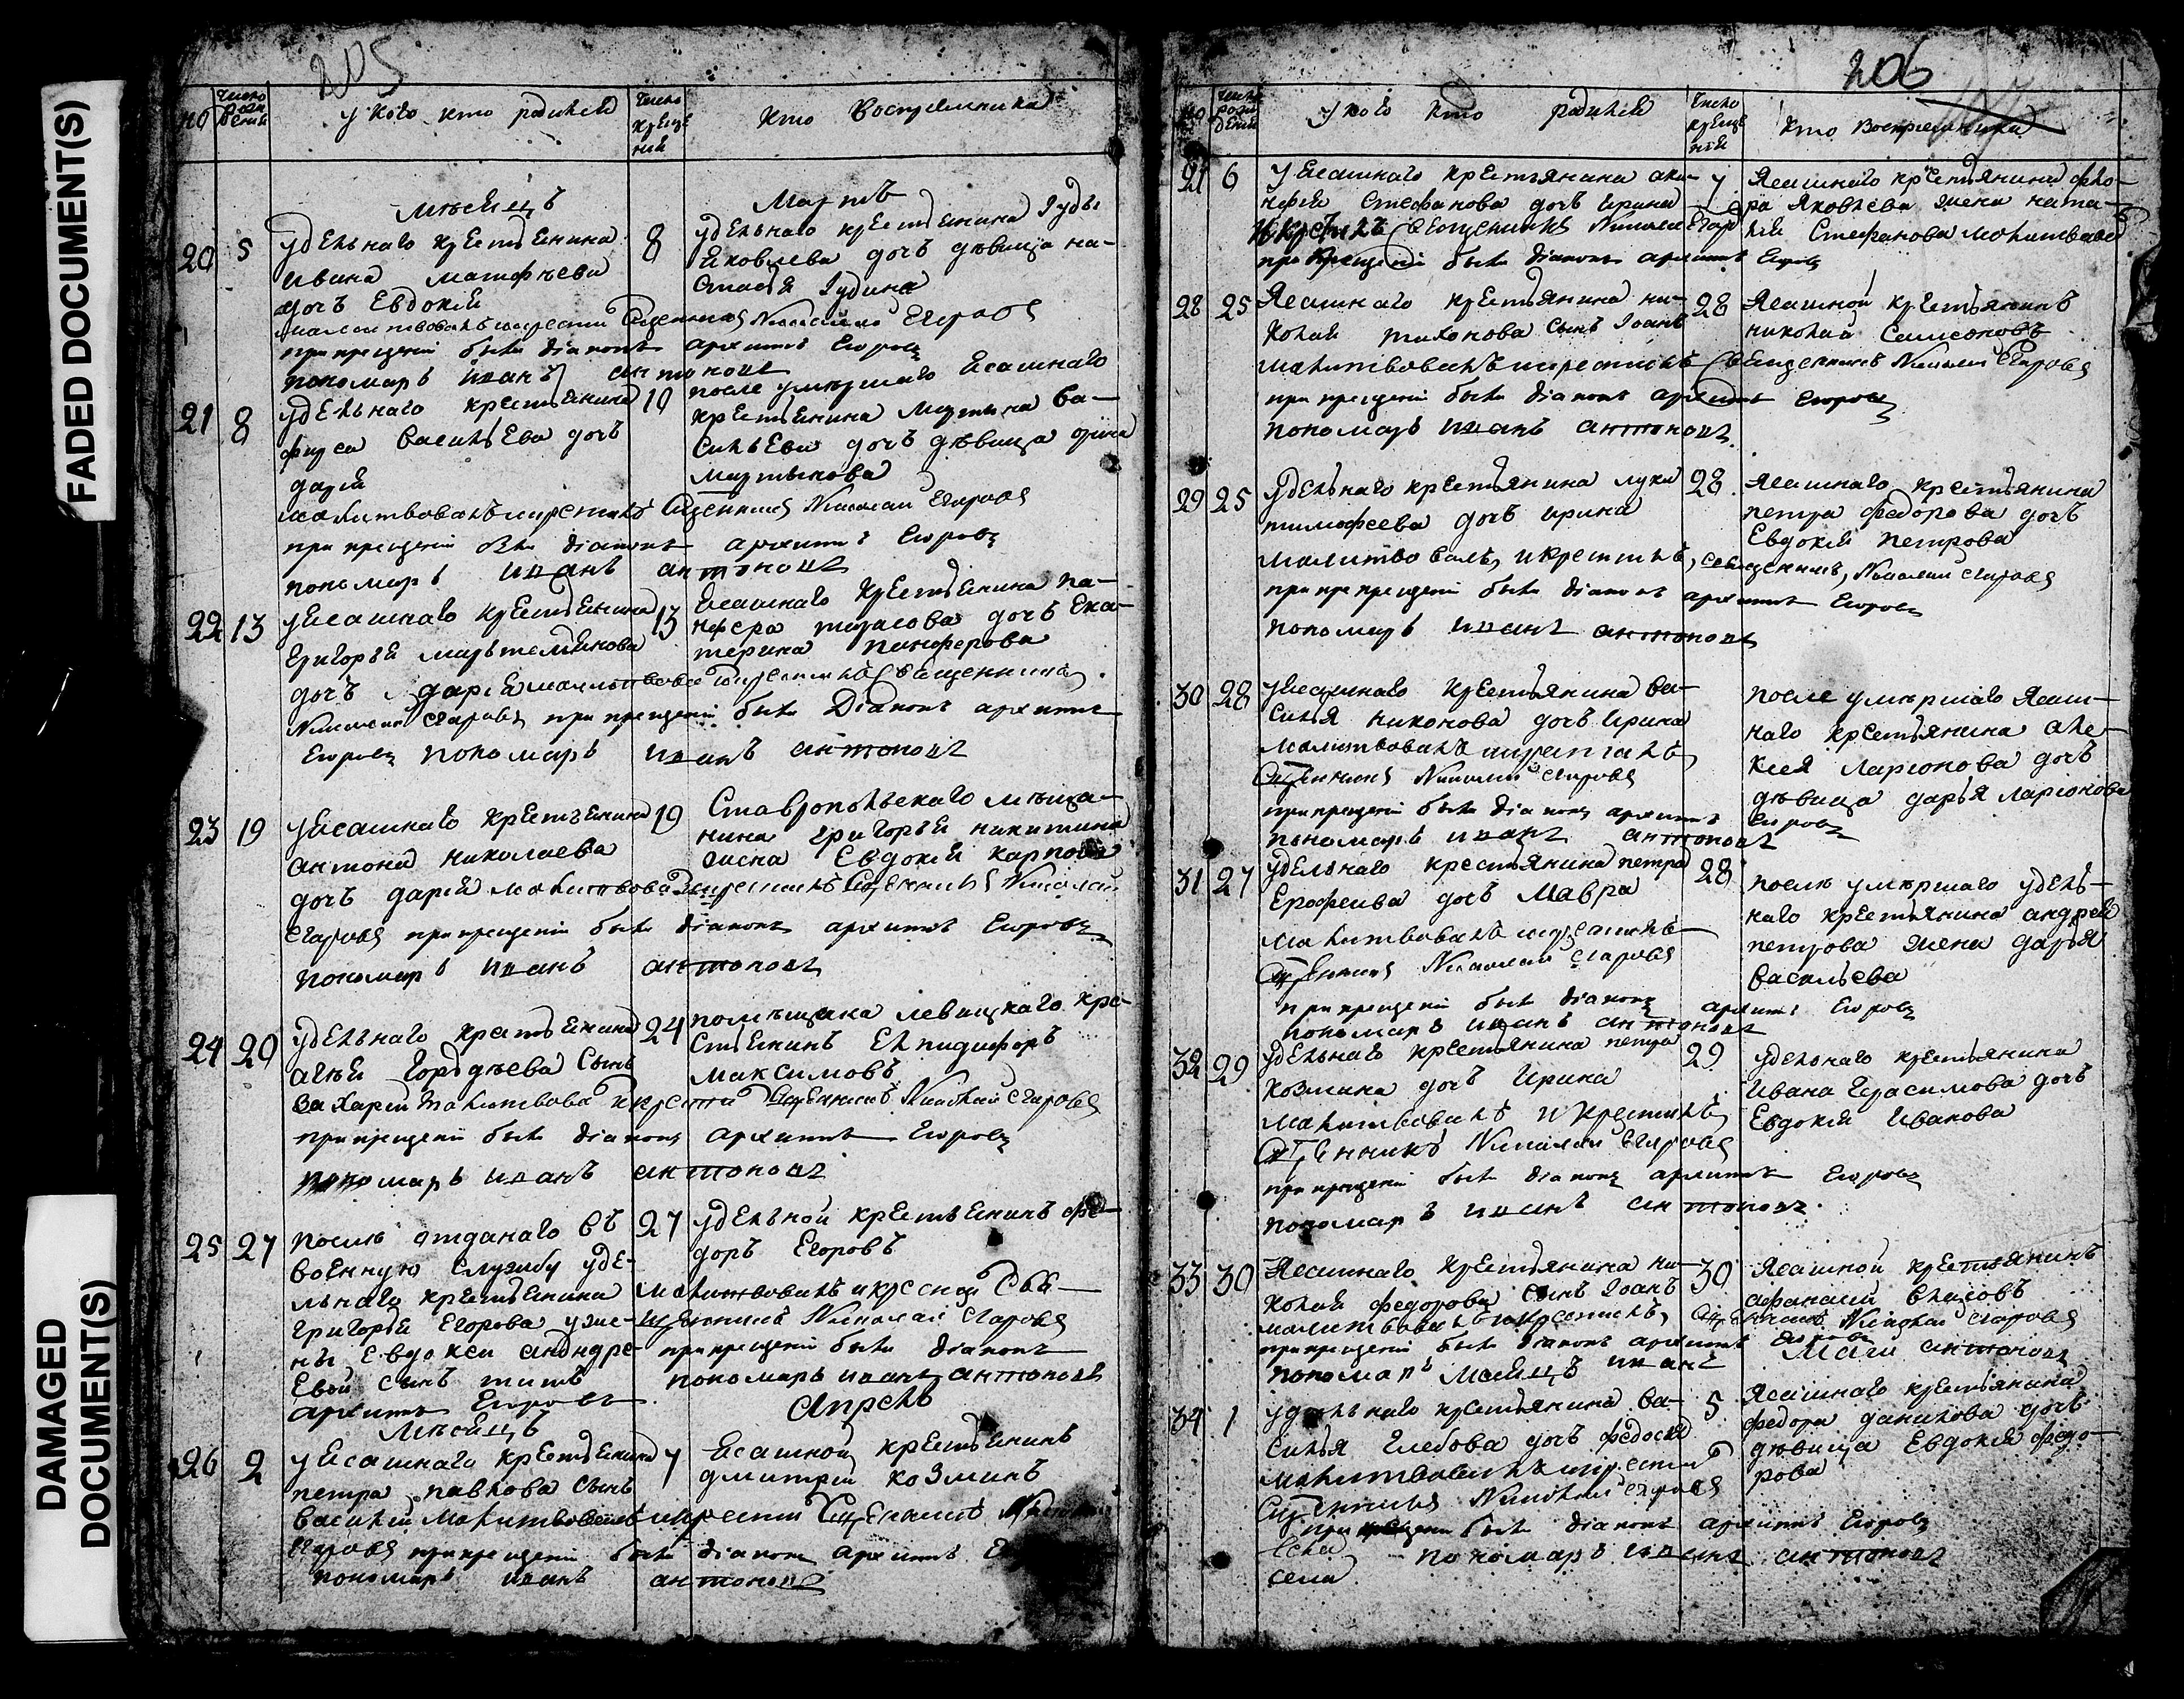 FADED DOCUMENT(S)
DAMAGED
DOCUMENT(S)
205
но
число рожде
у кого кто родился
число
креще
ній
кто восприемники
мѣсяцъ
мартъ
20 5
удѣльнаго крестьянина
ивана матфѣева
дочь Евдокія
8
удѣльнаго крестьянина Іуды
яковлева дочь дѣвица на-
стасья Іудина
при крещеніи были діаконъ архипъ Егоровъ
пономарь иванъ антоновъ
21 8
удѣльнаго крестьянина
фирса васильева дочь
дарія
10
после умершаго ясашнаго
крестьянина мартына ва-
сильева дочь дѣвица орина
мартынова
молитвовалъ и крестилъ священникъ Николай Егоровъ
при крещеніи были діаконъ архипъ Егоровъ
пономарь иванъ антоновъ
22 13
у ясашнаго крестьянина
григорья
дочь дарія молитвовалъ и крестилъ священникъ
13
ясашнаго крестьянина па-
нфера тарасова дочь ека-
терина панферова
Николай Егоровъ при крещеніи были діаконъ архипъ
Егоровъ пономарь иванъ антоновъ
23 19
у ясашнаго крестьянина
антона николаева
19
Ставропольскаго мѣща-
нина григорья никитина
жена Евдокія карпова
дочь дарія молитвовалъ и крестилъ священникъ Николай
Егоровъ при крещеніи были діаконъ архипъ Егоровъ
пономарь иванъ антоновъ
24 20
удѣльнаго крестьянина
агѣя гордѣева сынъ
24
помѣщика левицкаго кре-
стьянинъ Елпидифоръ
максимовъ
захарій молитвовалъ и крестилъ священникъ Николай Егоровъ
при крещеніи были діаконъ архипъ Егоровъ
пономарь иванъ антоновъ
25 27
после отданаго въ
военную службу удѣ-
льнаго крестьянина
григорья Егорова у же-
ны Евдокеи андре-
евой сынъ титъ
27
удѣльной крестьянинъ фе-
доръ Егоровъ
молитвовалъ и крестилъ свя-
щенникъ Николай Егоровъ
при крещеніи были діаконъ
архипъ Егоровъ
пономарь иванъ антоновъ
мѣсяцъ
апрель
26 2
у ясашнаго крестьянина
петра павлова сынъ
7
ясашной крестьянинъ
дмитрій козминъ
василій молитвовалъ и крестилъ священникъ
Егоровъ при крещеніи были діаконъ архипъ
пономарь иванъ антоновъ
206
число
рож
деній
у кого кто родился
число
креще
ній
кто восприемники
27 6
у ясашнаго крестьянина аки-
нфія стефанова дочь ирина
7
ясашнаго крестьянина фео-
ра яковлева жена ната-
лія стефанова молитвовалъ
и крестилъ священникъ Николай Егоровъ
при крещеніи были діаконъ архипъ Егоровъ
28 25
ясашнаго крестьянина ни-
колая тихонова сынъ Іоанъ
28
ясашной крестьянинъ
николай самсоновъ
молитвовалъ и крестилъ священникъ Николай Егоровъ
при крещеніи были діаконъ архипъ Егоровъ
пономарь иванъ антоновъ
29 25
удѣльнаго крестьянина луки
тимофеева дочь ирина
28
ясашнаго крестьянина
петра федорова дочь
Евдокія петрова
молитвовалъ и крестилъ священникъ Николай Егоровъ
при крещеніи были діаконъ архипъ Егоровъ
пономарь иванъ антоновъ
30 28
у ясашнаго крестьянина ва-
силья никонова дочь ирина
молитвовалъ и крестилъ
священникъ Николай Егоровъ
после умершаго ясаш-
наго крестьянина але-
ксея ларіонова дочь
дѣвица дарья ларіонова
при крещеніи были діаконъ архипъ Егоровъ
пономарь иванъ антоновъ
31 27
удѣльнаго крестьянина петра
Ерофеива дочь мавра
28
после умершаго удѣль-
наго крестьянина андрея
петрова жена дарья
васильева
молитвовалъ и крестилъ
священникъ Николай Егоровъ
при крещеніи были діаконъ архипъ Егоровъ
пономарь иванъ антоновъ
32 29
удѣльнаго крестьянина петра
козмина дочь ирина
29
удѣльнаго крестьянина
ивана герасимова дочь
Евдокія иванова
молитвовалъ и крестилъ
священникъ Николай Егоровъ
при крещеніи были діаконъ архипъ Егоровъ
пономарь иванъ антоновъ
33 30
ясашнаго крестьянина ни-
колая федорова сынъ Іоанъ
30
ясашной крестьянинъ
афанасій власовъ
молитвовалъ и крестилъ священникъ Николай Егоровъ
при крещеніи были діаконъ архипъ Егоровъ
пономарь иванъ антоновъ
мѣсяцъ
май
34 1
удѣльнаго крестьянина ва-
силья глебова дочь федосья
5
ясашнаго крестьянина
федора данилова дочь
дѣвица Евдокія федо-
рова
молитвовалъ и крестилъ
священникъ Николай Егоровъ
при крещеніи были діаконъ архипъ Егоровъ
пономарь иванъ антоновъ
села